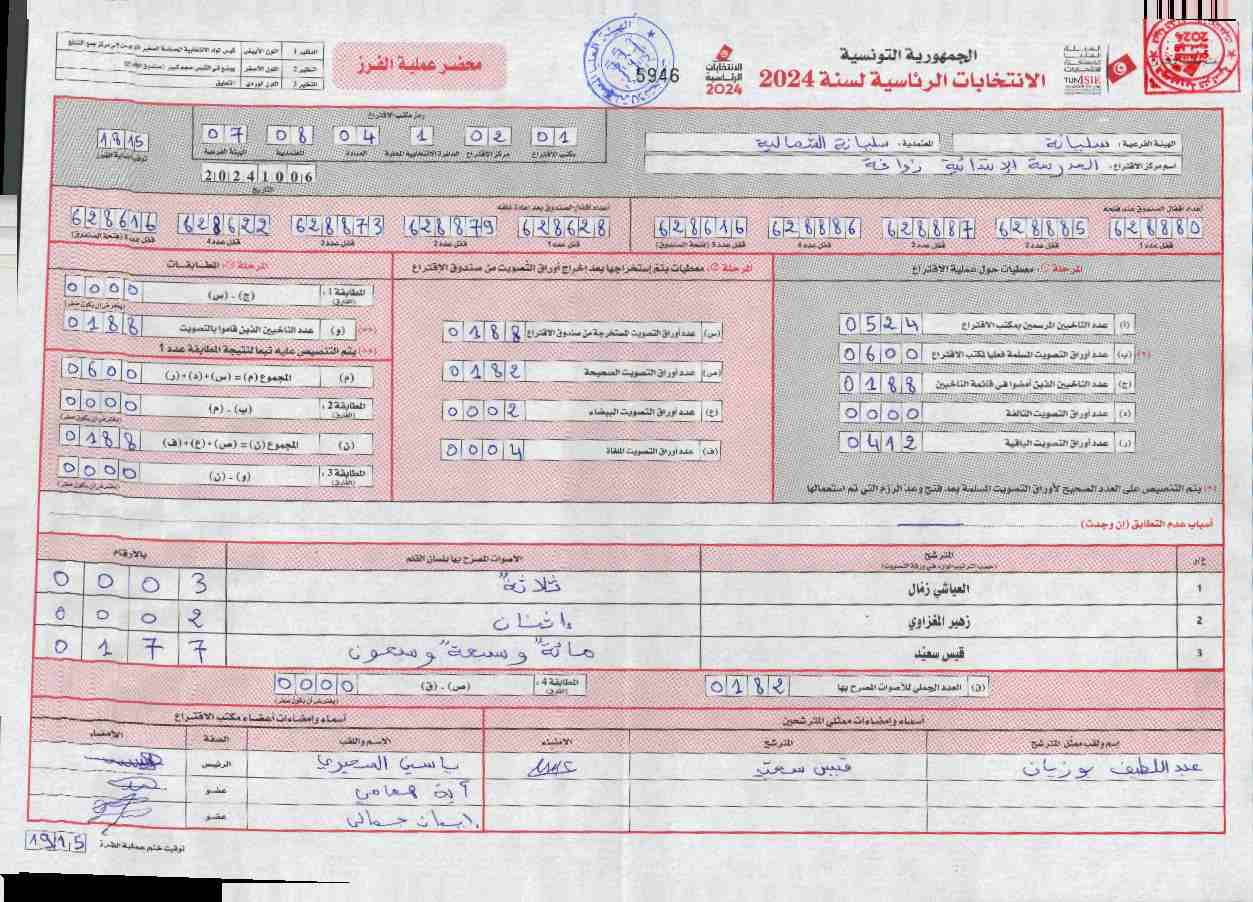 الجمهورية التونسية
الانتخابات الرئاسية لسنة 2024
الانتخابات الرئاسية 2024
5946
محضر عملية الفرز
النظير 1 اللون الأبيض
النظير 2 اللون الأصفر
النظير 3 اللون الوردي التعليق
الهيئة الفرعية : سليانة
المعتمدية : سليانة الشمالية
اسم مركز الاقتراع : المدرسة الابتدائية زوافة
رمز مكتب الاقتراع
01 02 1 04 08 07
مكتب الاقتراع مركز الاقتراع الدائرة الانتخابية المحلية العمادة المعتمدية الهيئة الفرعية
1815
توقيت بداية الفرز
20241006
التاريخ
أعداد أقفال الصندوق عند فتحه
628880 628885 628887 628886 628616
قفل عدد 1 قفل عدد 2 قفل عدد 3 قفل عدد 4 قفل عدد 5 (فتحة الصندوق)
أعداد أقفال الصندوق بعد إعادة غلقه
628628 628879 628873 628622 628616
قفل عدد 1 قفل عدد 2 قفل عدد 3 قفل عدد 4 قفل عدد 5 (فتحة الصندوق)
المرحلة 1: معطيات حول عملية الاقتراع
(أ) عدد الناخبين المرسمين بمكتب الاقتراع 0524
(*) (ب) عدد أوراق التصويت المسلمة فعليا لمكتب الاقتراع 0600
(ج) عدد الناخبين الذين أمضوا في قائمة الناخبين 0188
(د) عدد أوراق التصويت التالفة 0000
(ر) عدد أوراق التصويت الباقية 0412
(*) يتم التنصيص على العدد الصحيح لأوراق التصويت المسلمة بعد فتح وعد الرزم التي تم استعمالها
المرحلة 2: معطيات يتم إستخراجها بعد إخراج أوراق التصويت من صندوق الاقتراع
(س) عدد أوراق التصويت المستخرجة من صندوق الاقتراع 0188
(ص) عدد أوراق التصويت الصحيحة 0182
(ع) عدد أوراق التصويت البيضاء 0002
(ف) عدد أوراق التصويت الملغاة 0004
المرحلة 3: المطابقات
المطابقة 1: (الفارق) (ج) - (س) 0000
(يفترض أن يكون صفر)
(**) (و) عدد الناخبين الذين قاموا بالتصويت 0188
(**) يتم التنصيص عليه تبعا لنتيجة المطابقة عدد 1
(م) المجموع (م) = (س)+(د)+(ر) 0600
المطابقة 2: (الفارق) (ب) - (م) 0000
(يفترض أن يكون صفر)
(ن) المجموع (ن) = (ص)+(ع)+(ف) 0188
المطابقة 3: (الفارق) (و) - (ن) 0000
(يفترض أن يكون صفر)
أسباب عدم التطابق (إن وجدت)
ع/ر المترشح (حسب الترتيب الوارد في ورقة التصويت) الأصوات المصرح بها بلسان القلم بالأرقام
1 العياشي زمّال ثلاثة 0003
2 زهير المغزاوي اثنان 0002
3 قيس سعيّد مائة وسبعة وسبعون 0177
(ق) العدد الجملي للأصوات المصرح بها 0182
المطابقة 4: (الفارق) (ص) - (ق) 0000
(يفترض أن يكون صفر)
أسماء وإمضاءات ممثلي المترشحين
إسم ولقب ممثل المترشح المترشح الامضاء
عبد اللطيف بوزيان قيس سعيد
أسماء وإمضاءات أعضاء مكتب الاقتراع
الاسم واللقب الصفة الامضاء
الرئيس
آية همامي عضو
إيمان عضو
توقيت ختم عملية الفرز 1915